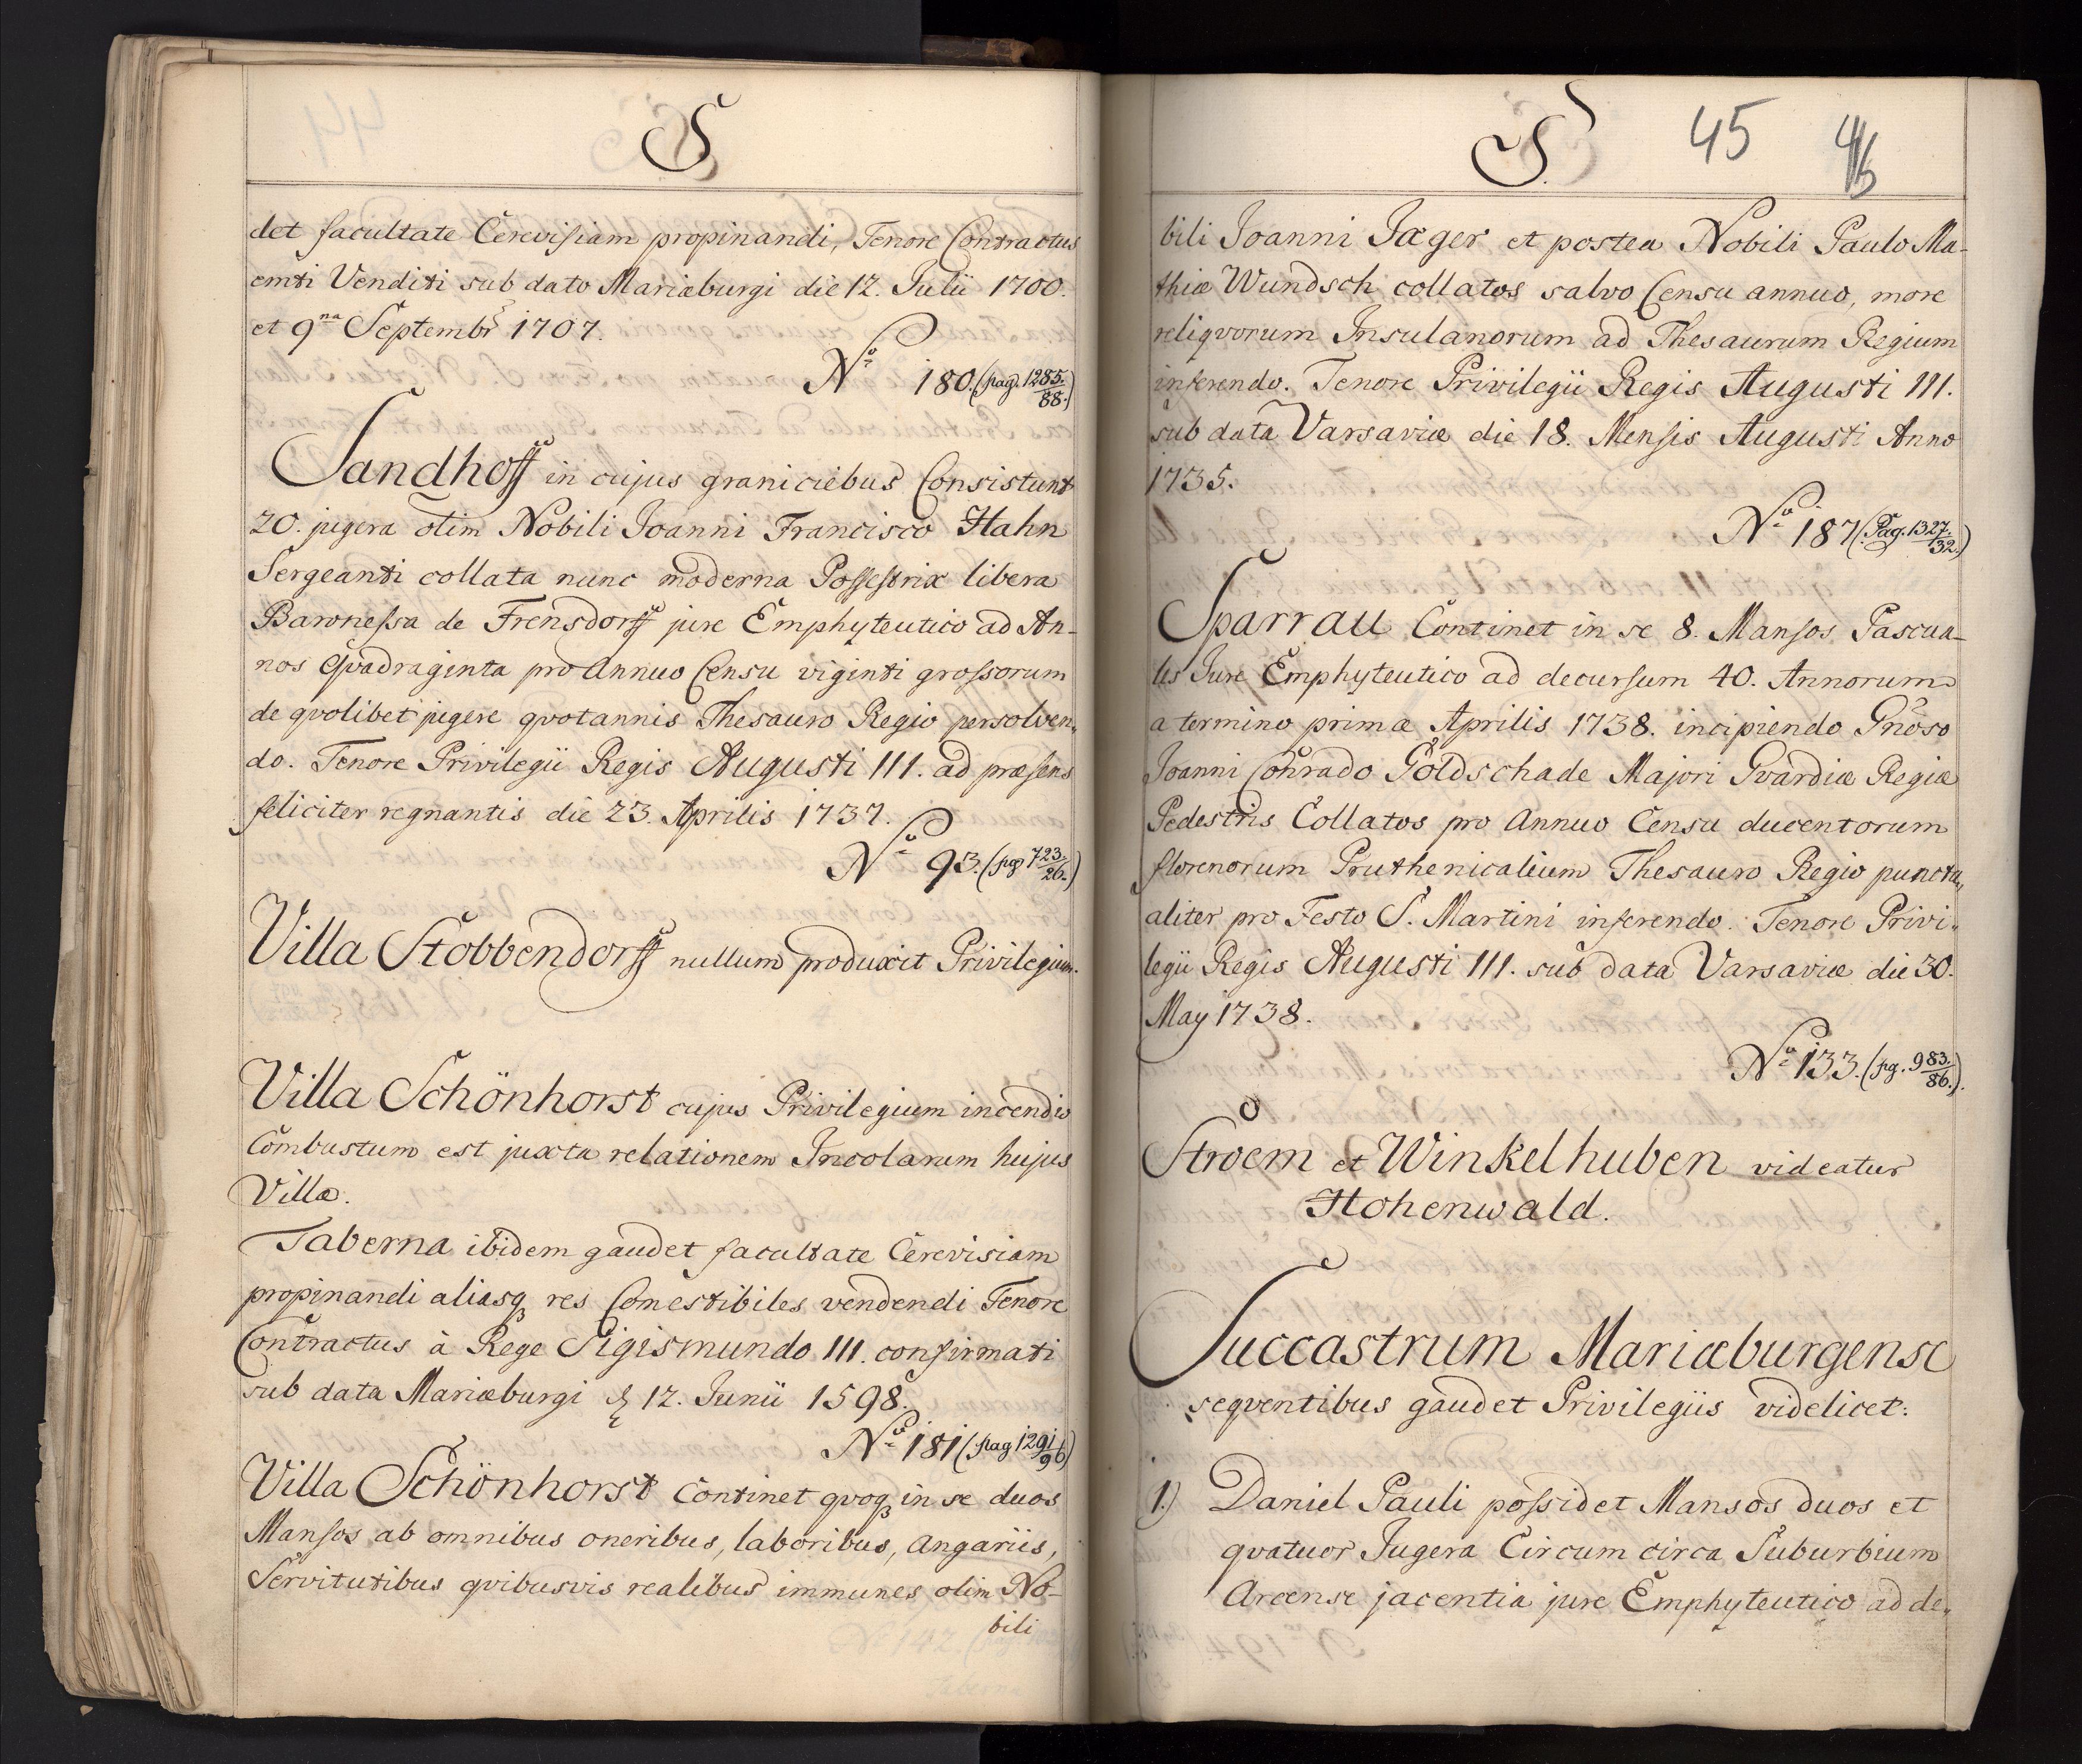 S
det facultate Cerevisiam propinandi, Tenore Contractus
emti Venditi sub dato Mariæburgi die 12. Julii 1700.
et 9na Septembr 1707.
No 180. (pag. 1285./88.)
Sandhoff in cujus graniciebus Consistunt
20. jugera olim Nobili Joanni Francisco Hahn
Sergeanti collata nunc moderna Possestrix libera
Baronessa de Frensdorff jure Emphyteutico ad An-
nos Qvadraginta pro Annuo Censu viginti grossorum
de qvolibet jugere qvotannis Thesauro Regio persolven„
do. Tenore Privilegii Regis Augusti III. ad præsens
feliciter regnantis die 23. Aprilis 1737.
No 93. (pag 723./26.)
Villa Stobbendorff nullum produxit Privilegium.
Villa Schönhorst cujus Privilegium incendio
Combustum est juxta relationem Incolarum hujus
Villæ.
Taberna ibidem gaudet facultate Cerevisiam
propinandi aliasq res Comestibiles vendendi Tenore
Contractus à Rege Sigismundo III. confirmati
sub data Mariæburgi d 12. Junii 1598.
No 181 (pag 1291/96)
Villa Schönhorst Continet qvoq in se duos
Mansos ab omnibus oneribus, laboribus, angariis,
Servitutibus qvibusvis realibus immunes olim No-
bili
S. 45 46
bili Joanni Jæger et postea Nobili Paulo Ma-
thiæ Wundsch collatos salvo Censu annuo, more
reliqvorum Insulanorum ad Thesaurum Regium
inferendo. Tenore Privilegii Regis Augusti III.
sub data Varsaviæ die 18. Mensis Augusti Anno
1735.
No 187 (Pag. 1327./32.)
Sparrau Continet in se 8. Mansos Pascua-
les Jure Emphyteutico ad decursum 40. Annorum
a termino prima Aprilis 1738. incipiendo Gnoso
Joanni Conrado Goldschade Majori Gvardiæ Regiæ
Pedestris Collatos pro Annuo Censu ducentorum
florenorum Pruthenicalium Thesauro Regio punctu„
aliter pro Festo S. Martini inferendo. Tenore Privi„
legii Regis Augusti III. sub data Varsaviæ die 30.
May 1738.
No 133. (pg. 983./86.).
Stroem et Winkelhuben videatur
Hohenwald.
Succastrum Mariæburgense
seqventibus gaudet Privilegiis videlicet:
1.) Daniel Pauli possidet Mansos duos et
qvatuor Jugera Circum circa Suburbium
Arcense jacentia jure Emphyteutico ad de„